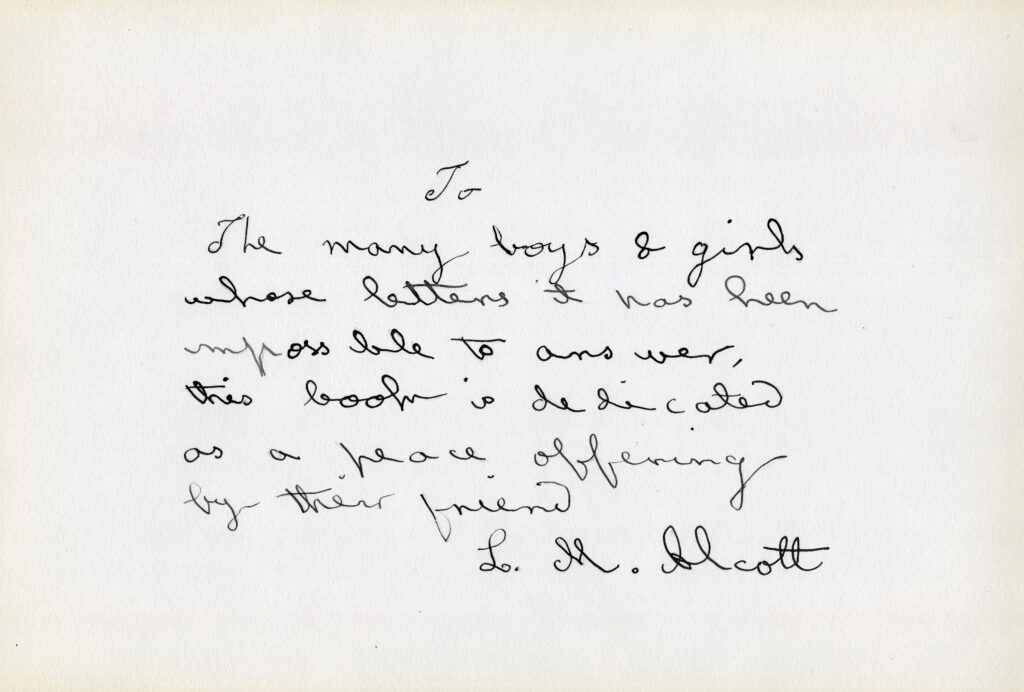 To
The many boys & girls
whose letters it has been
impossible to answer,
this book is dedicated
as a peace offering
by their friend
L. M. Alcott